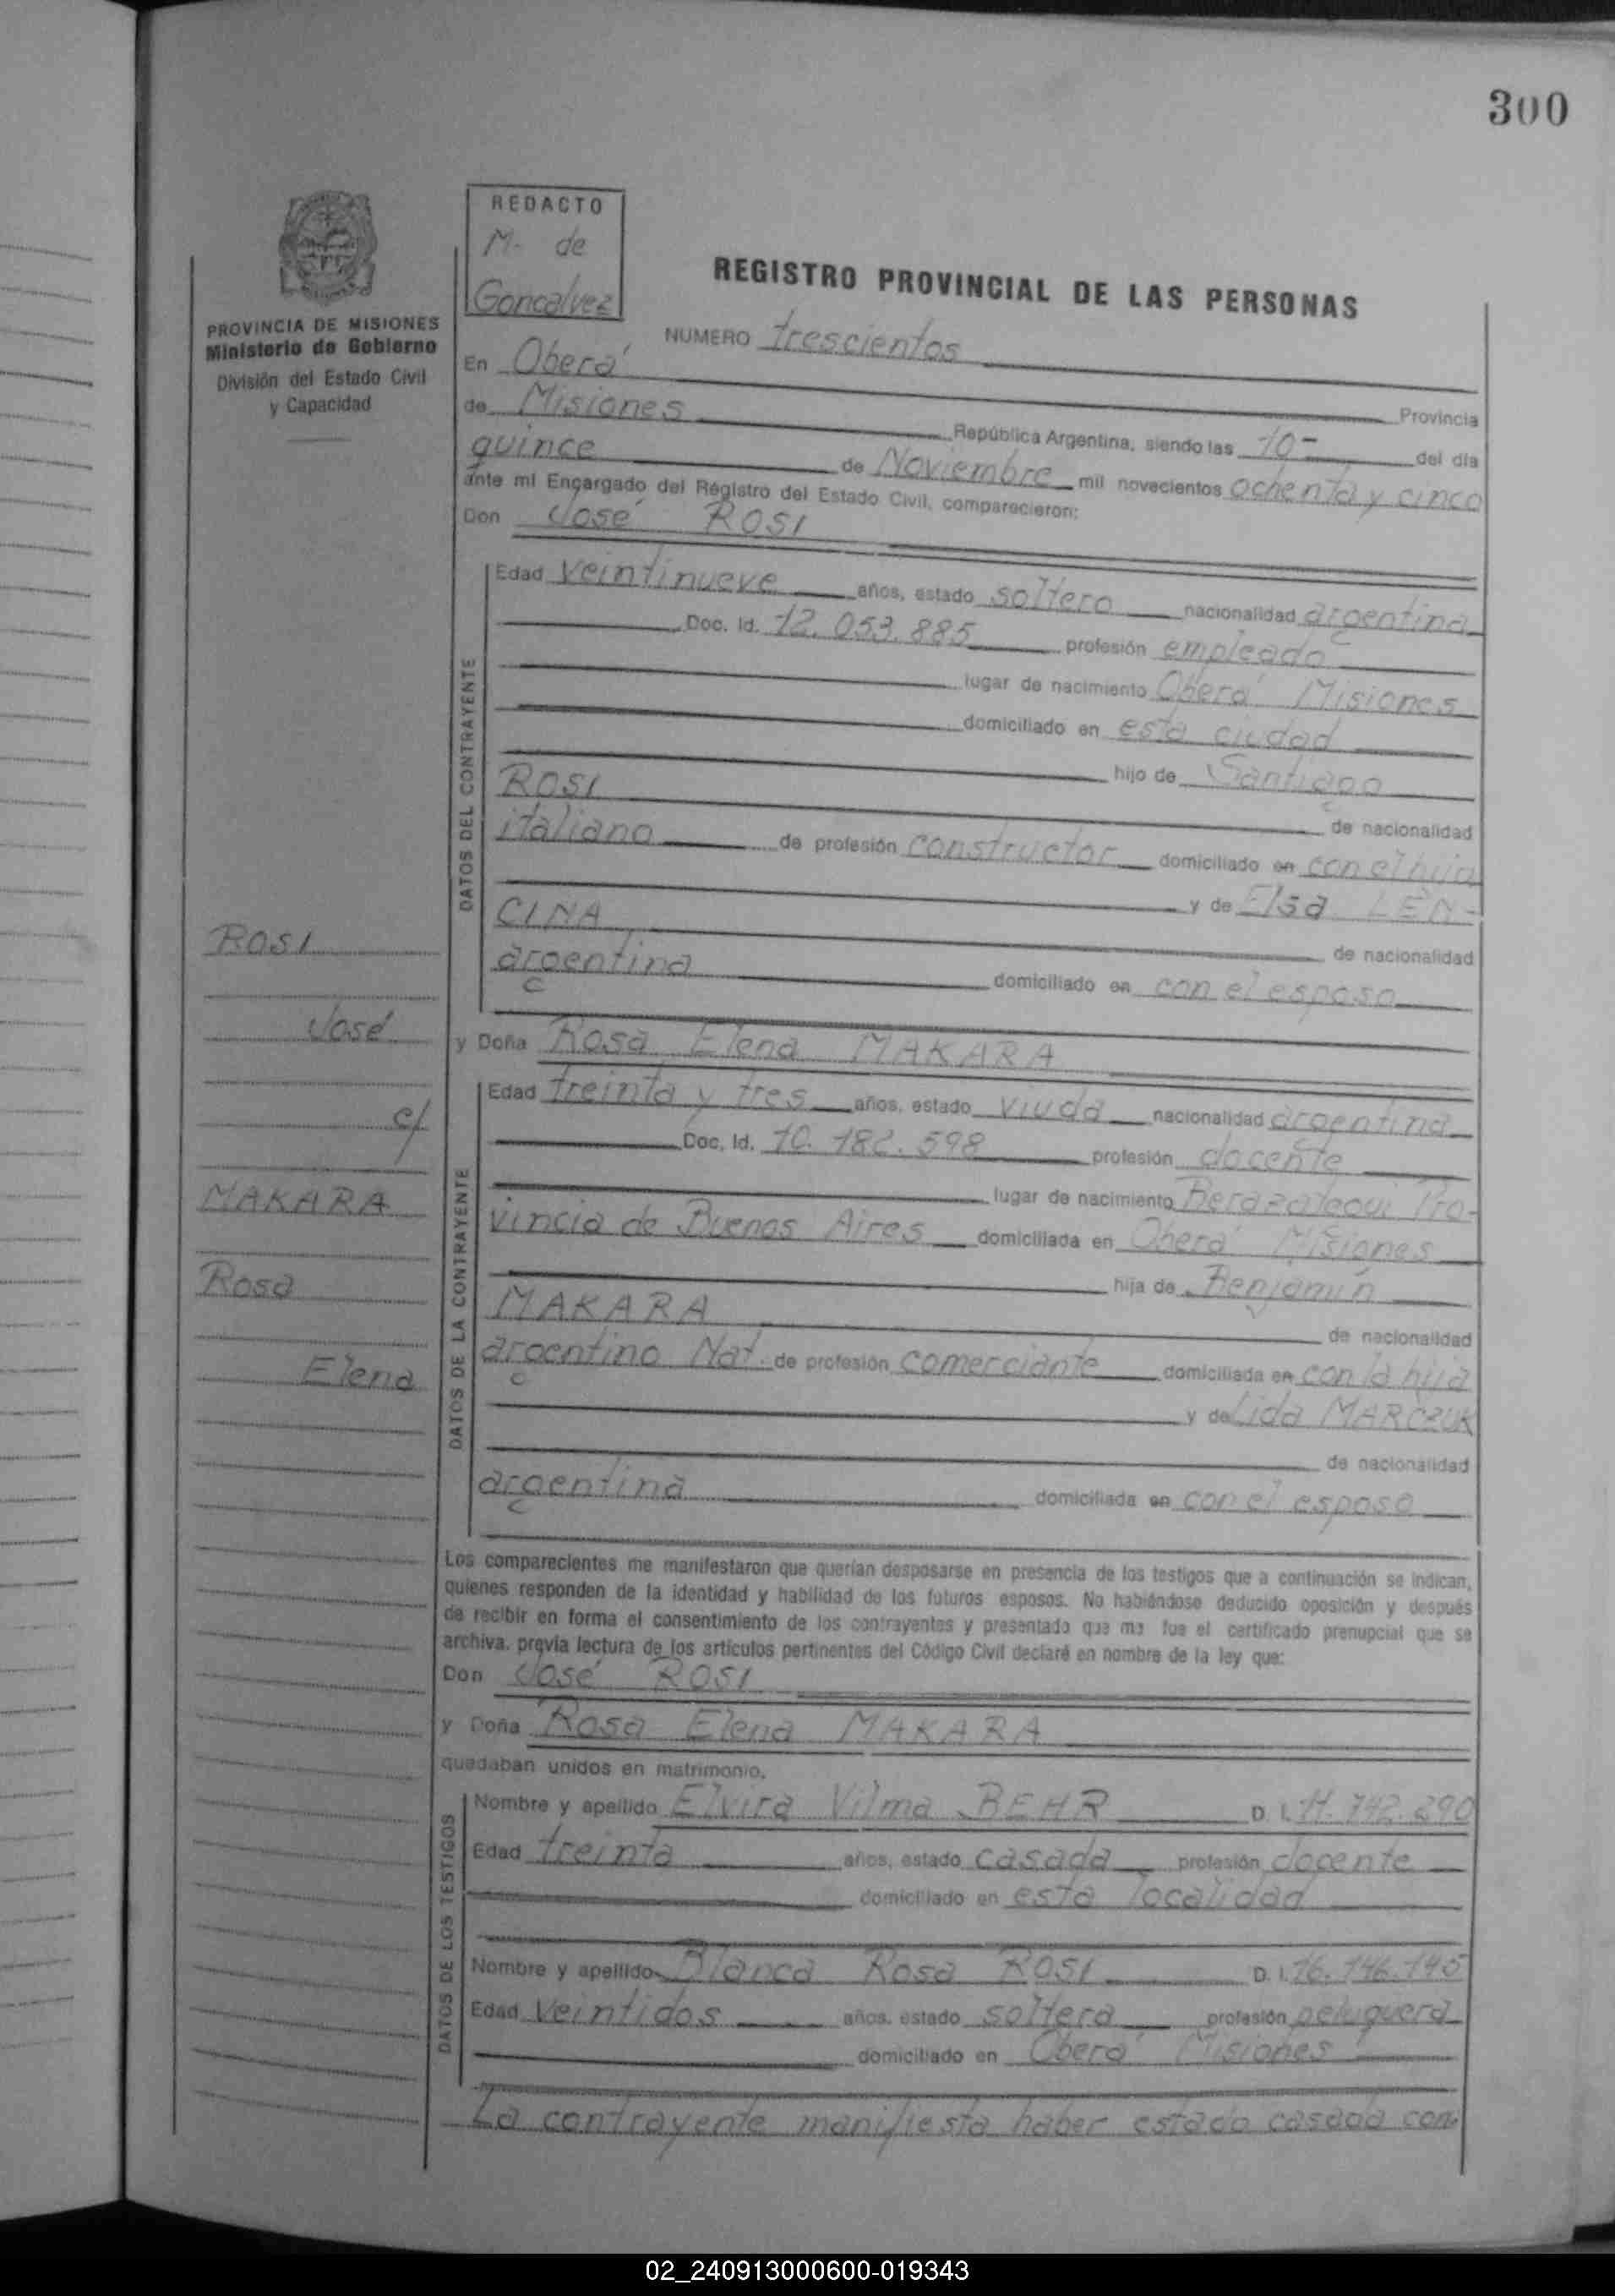 300
REDACTO
M. de
Goncalvez
PROVINCIA DE MISIONES
Ministerio de Gobierno
División del Estado Civil
y Capacidad
REGISTRO PROVINCIAL DE LAS PERSONAS
NUMERO trescientos
En Oberá
Provincia
de Misiones República Argentina, siendo las 10- del día
quince de Noviembre mil novecientos ochenta y cinco
ante mi Encargado del Registro del Estado Civil, comparecieron:
Don José ROSI
DATOS DEL CONTRAYENTE
Edad veintinueve años, estado soltero nacionalidad argentina
Doc. Id. 12.053.885 profesión empleado
lugar de nacimiento Oberá Misiones
domiciliado en esta ciudad
hijo de Santiago
ROSI de nacionalidad
italiano de profesión constructor domiciliado en con el hijo
y de Elsa LEN-
CINA de nacionalidad
argentina domiciliado en con el esposo
y Doña Rosa Elena MAKARA
DATOS DE LA CONTRAYENTE
Edad treinta y tres años, estado viuda nacionalidad argentina
Doc. Id. 10.182.598 profesión docente
lugar de nacimiento Berazategui Pro-
vincia de Buenos Aires domiciliada en Oberá Misiones
hija de Benjamín
MAKARA de nacionalidad
argentino Nat. de profesión comerciante domiciliada en con la hija
y de Lida MARCZUK
de nacionalidad
argentina domiciliada en con el esposo
Los comparecientes me manifestaron que querían desposarse en presencia de los testigos que a continuación se indican,
quienes responden de la identidad y habilidad de los futuros esposos. No habiéndose deducido oposición y después
de recibir en forma el consentimiento de los contrayentes y presentado que me fue el certificado prenupcial que se
archiva, previa lectura de los artículos pertinentes del Código Civil declaré en nombre de la ley que:
Don José ROSI
y Doña Rosa Elena MAKARA
quedaban unidos en matrimonio.
DATOS DE LOS TESTIGOS
Nombre y apellido Elvira Vilma BEHR D. I. 11.742.290
Edad treinta años, estado casada profesión docente
domiciliado en esta localidad
Nombre y apellido Blanca Rosa ROSI D. I. 16.746.145
Edad veintidos años, estado soltera profesión peluquera
domiciliado en Oberá Misiones
La contrayente manifiesta haber estado casada con
ROSI
José
c/
MAKARA
Rosa
Elena
02_240913000600-019343